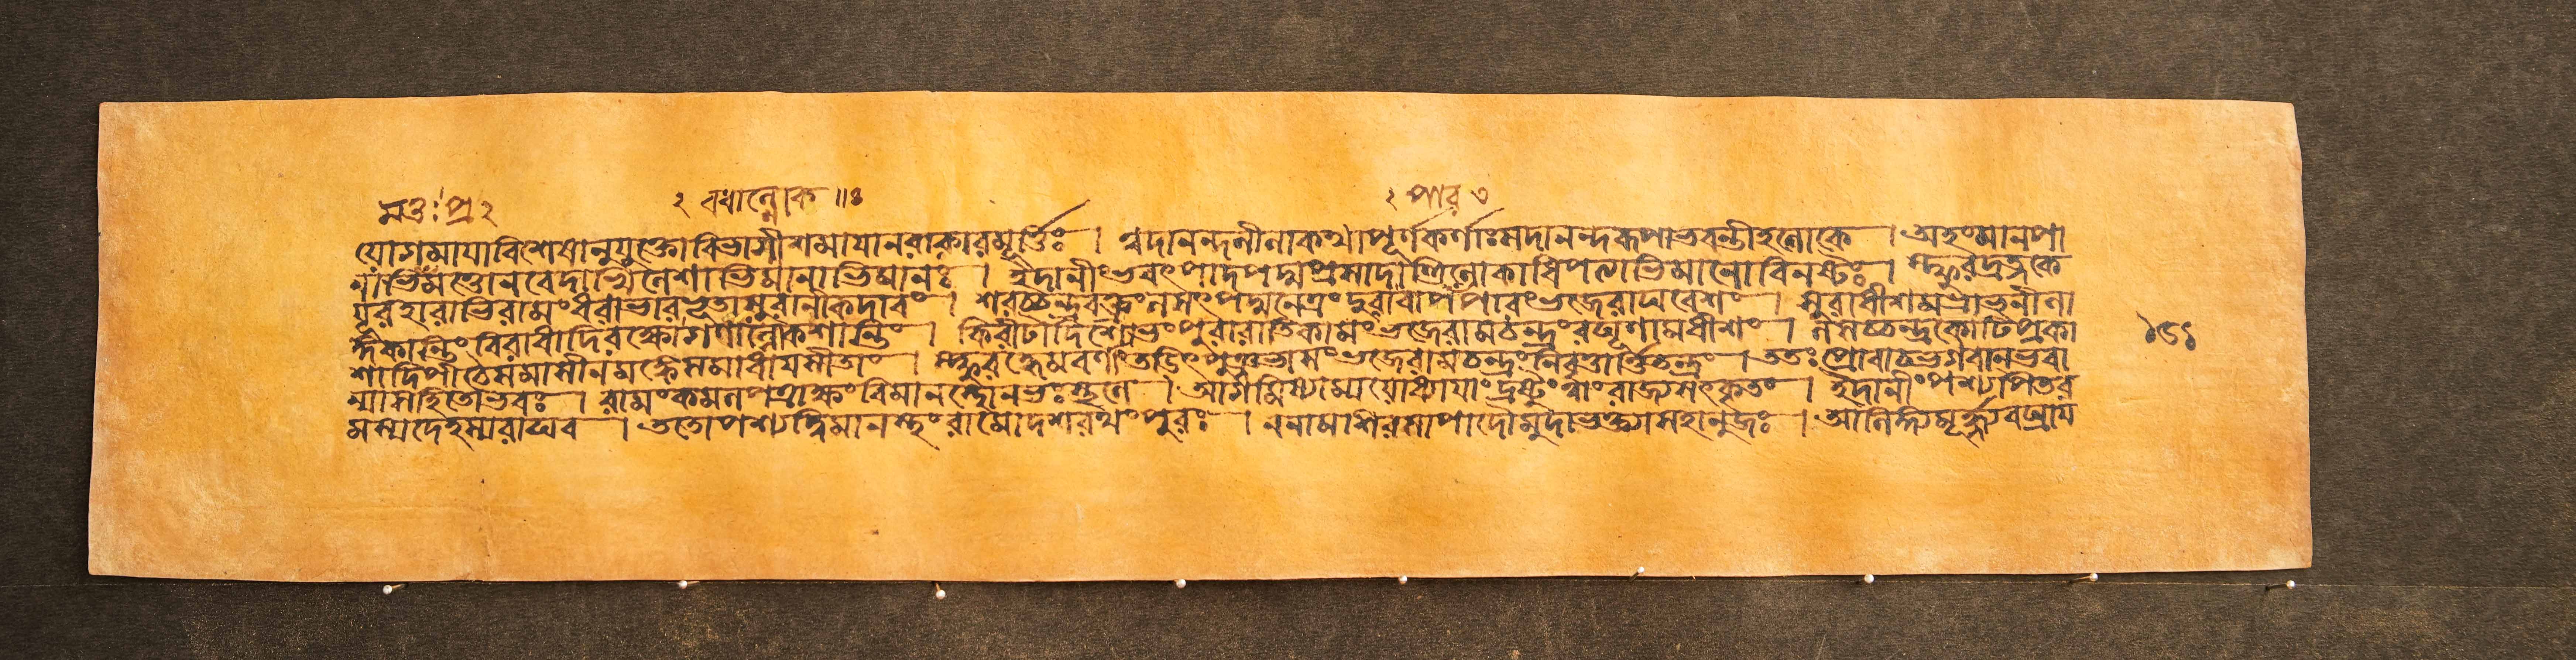 ২ বধাল্লোক ॥৪
২ পার ৩
যোগমায়াবিশেষানুযুক্তোবিভাসীশমায়ানরাকারমূর্ত্তিঃ । ত্বদানন্দলীলাকথাপূর্ণকর্ণাঃসদানন্দরূপাভবন্তীহলোকে । অহংমানপা
নাভিমত্তোনবেদাখিলেশাভিমানাভিমানঃ । ইদানীংভবৎপাদপদ্মপ্রসাদাত্রিলোকাধিপত্যাভিমানোবিনষ্টঃ । স্ফুরদ্রত্নকে
যূরহারাভিরামংধরাভারভূতাসুরানীকদাবং । শরচ্চন্দ্রবক্ত্রংলসৎপদ্মনেত্রংদুরাবারপারংভজেরাঘবেশং । সুরাধীশমভ্রাভনীলা
ঙ্গকান্তিংবিরাধাদিরক্ষোগণাল্লোকশান্তিং । কিরীটাদিশোভংপুরারাতিকামংভজেরামচন্দ্রংরঘূণামধীশং । লসচ্চন্দ্রকোটিপ্রকা
শাদিপীঠেসমাসীনমঙ্কেসমাধায়সীতাং । স্ফুরদ্ধেমবর্ণাংতডিৎপুঞ্জভাসংভজেরামচন্দ্রংনিবৃত্তার্ত্তিতন্দ্রং । ততঃপ্রোবাচভগবানভবা
ন্যাসহিতোভবঃ । রামংকমলপত্রাক্ষংবিমানস্থোনভঃস্থলে । আগমিষ্যাম্যযোধ্যায়াংদ্রষ্টুংত্বাংরাজ্যসৎকৃতং । ইদানীংপশ্যপিতর
মস্যদেহস্যরাঘব । ততোপশ্যদ্বিমানস্থংরামোদশরথংপুরঃ । ননামশিরসাপাদৌমুদাভক্ত্যাসহানুজঃ । আলিঙ্গ্যমূর্ধ্ন্যবঘ্রায়